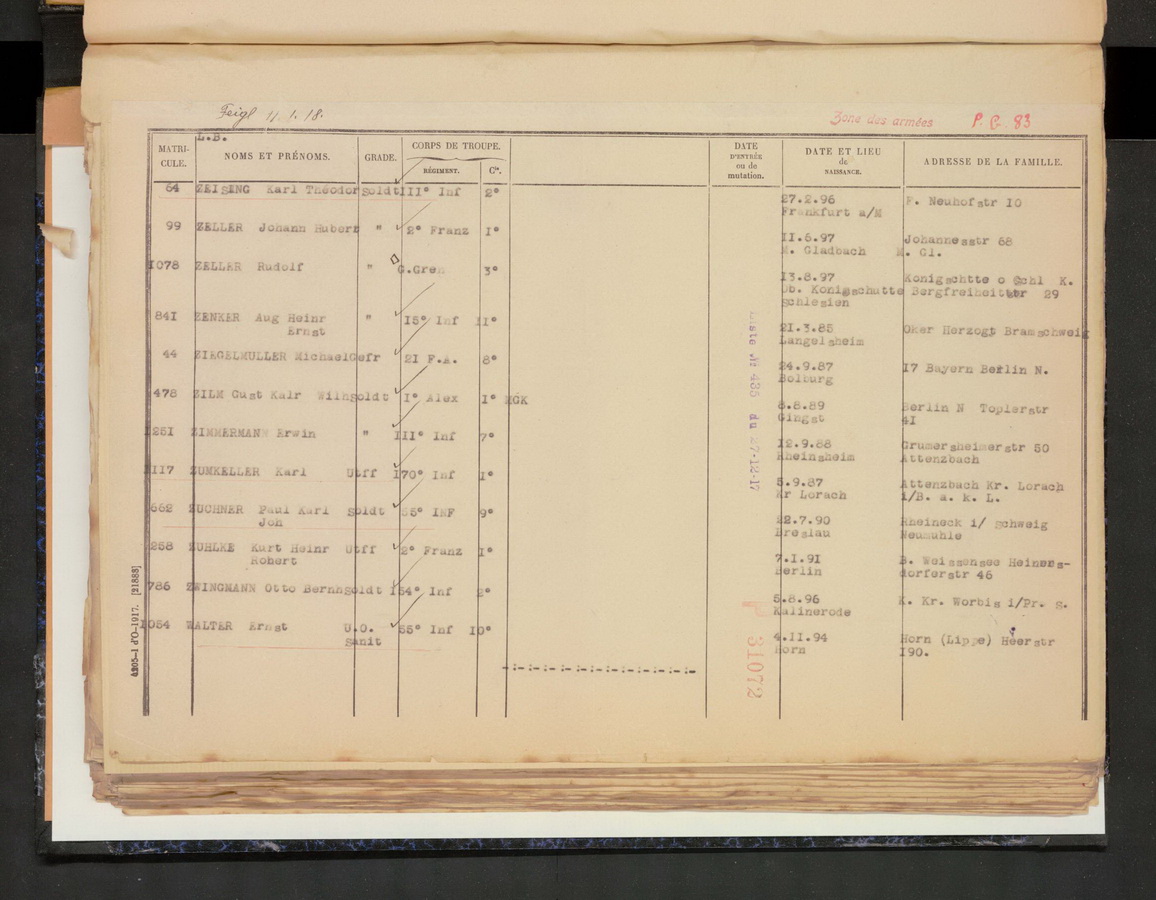 Feigl 11.1.18.
Zone des armées P. G. 83
L.B.
MATRI-CULE. NOMS ET PRÉNOMS. GRADE. CORPS DE TROUPE. RÉGIMENT. Cie. DATE D'ENTRÉE ou de mutation. DATE ET LIEU de NAISSANCE. ADRESSE DE LA FAMILLE.
64 ZEISING Karl Théodor Soldt III° Inf 2° 27.2.96 F. Neuhofstr 10
Frankfurt a/M
99 ZELLER Johann Hubert " 2° Franz I° 11.6.97 Johannesstr 68
M. Gladbach M. Gl.
1078 ZELLER Rudolf " G.Gren 3° 13.8.97 Konigschtte o Schl K.
Ob. Konigschutte Bergfreiheitstr 29
Schlesien
841 ZENKER Aug Heinr " 15° Inf II° 21.3.85 Oker Herzogt Bramschweig
Ernst Langelsheim
44 ZIEGELMULLER Michael Gefr 21 F.A. 8° 24.9.87 17 Bayern Berlin N.
Bolburg
478 ZILM Gust Kalr Wilh Soldt I° Alex I° MGK 8.8.89 Berlin N Toplerstr
Gingst 41
1251 ZIMMERMANN Erwin " III° Inf 7° 12.9.88 Grumersheimerstr 50
Rheinsheim Attenzbach
1117 ZUMKELLER Karl Utff 170° Inf I° 5.9.87 Attenzbach Kr. Lorach
Kr Lorach i/B. a. k. L.
662 ZUCHNER Paul Karl Soldt 55° INF 9° 22.7.90 Rheineck i/ Schweig
Joh Breslau Neumuhle
258 ZUHLKE Kurt Heinr Utff 2° Franz I° 7.1.91 B. Weissensee Heiners-
Robert Berlin dorferstr 46
786 ZWINGMANN Otto Bernh Soldt 154° Inf 2° 5.8.96 K. Kr. Worbis i/Pr. S.
Kalinerode
1054 WALTER Ernst U.O. 55° Inf 10° 4.11.94 Horn (Lippe) Heerstr
Sanit Horn 190.
Liste № 435 du 27-12-17
P 31072
4205-1 d'O-1917. [21888]